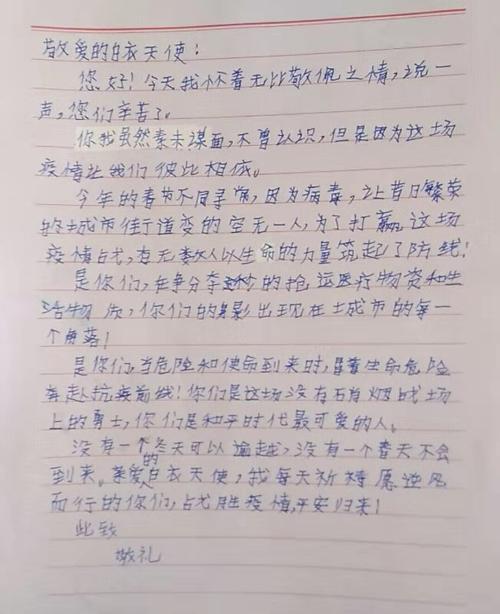 敬爱的白衣天使:
您好!今天我怀着无比敬佩之情,说一
声,您们辛苦了。
你我虽然素未谋面,不曾认识,但是因为这场
疫情让我们彼此相依。
今年的春节不同寻常,因为病毒,让昔日繁荣
的城市街道变的空无一人,为了打赢这场
疫情战,有无数人以生命的力量筑起了防线!
是你们,在争分夺秒的抢运医疗物资和生
活物资,你们的身影出现在城市的每一
个角落!
是你们,当危险和使命到来时,冒着生命危险
奔赴抗疫前线!你们是这场没有硝烟战场
上的勇士,你们是和平时代最可爱的人。
没有一个冬天可以逾越,没有一个春天不会
到来。亲爱的白衣天使,我每天祈祷愿逆风
而行的你们,战胜疫情,平安归来!
此致
敬礼